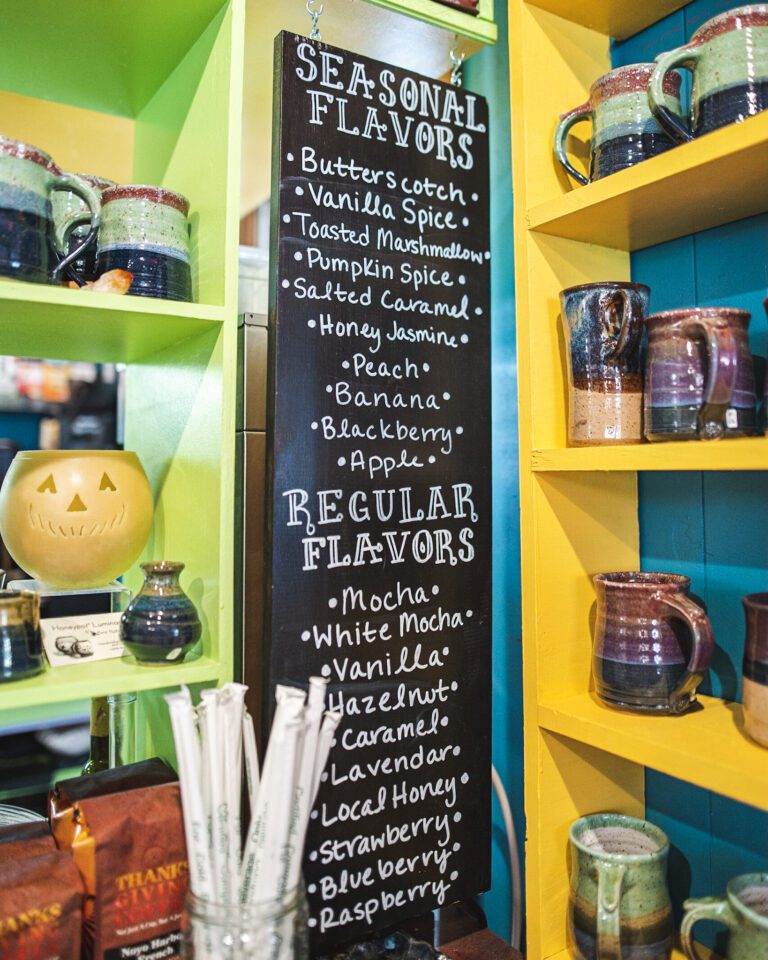 SEASONAL
FLAVORS
• Butterscotch •
• Vanilla Spice •
• Toasted Marshmallow •
• Pumpkin Spice •
• Salted Caramel •
• Honey Jasmine •
• Peach •
• Banana •
• Blackberry •
• Apple •
REGULAR
FLAVORS
• Mocha •
• White Mocha •
• Vanilla •
Hazelnut •
• Caramel •
• Lavendar •
• Local Honey •
• Strawberry •
• Blueberry •
• Raspberry •
Honeypot Luminar
THANKS
GIVING
COFFEE
Not Just A Cup, But A Just Cup
Noyo Harbor
French
THANKS